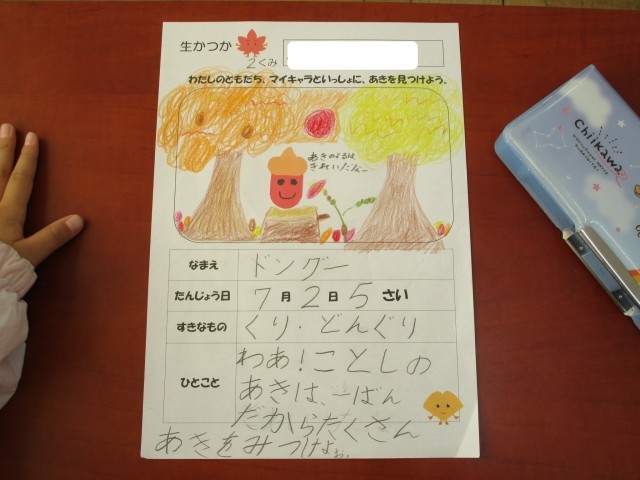 生かつか
2くみ
わたしのともだち、マイキャラといっしょに、あきを見つけよう。
あきのよるは
きれいだなー
なまえ ドングー
たんじょう日 7月2日5さい
すきなもの くり・どんぐり
ひとこと わあ!ことしの
あきは、一ばん
だからたくさん
あきをみつけよぉ。
Chiikawa